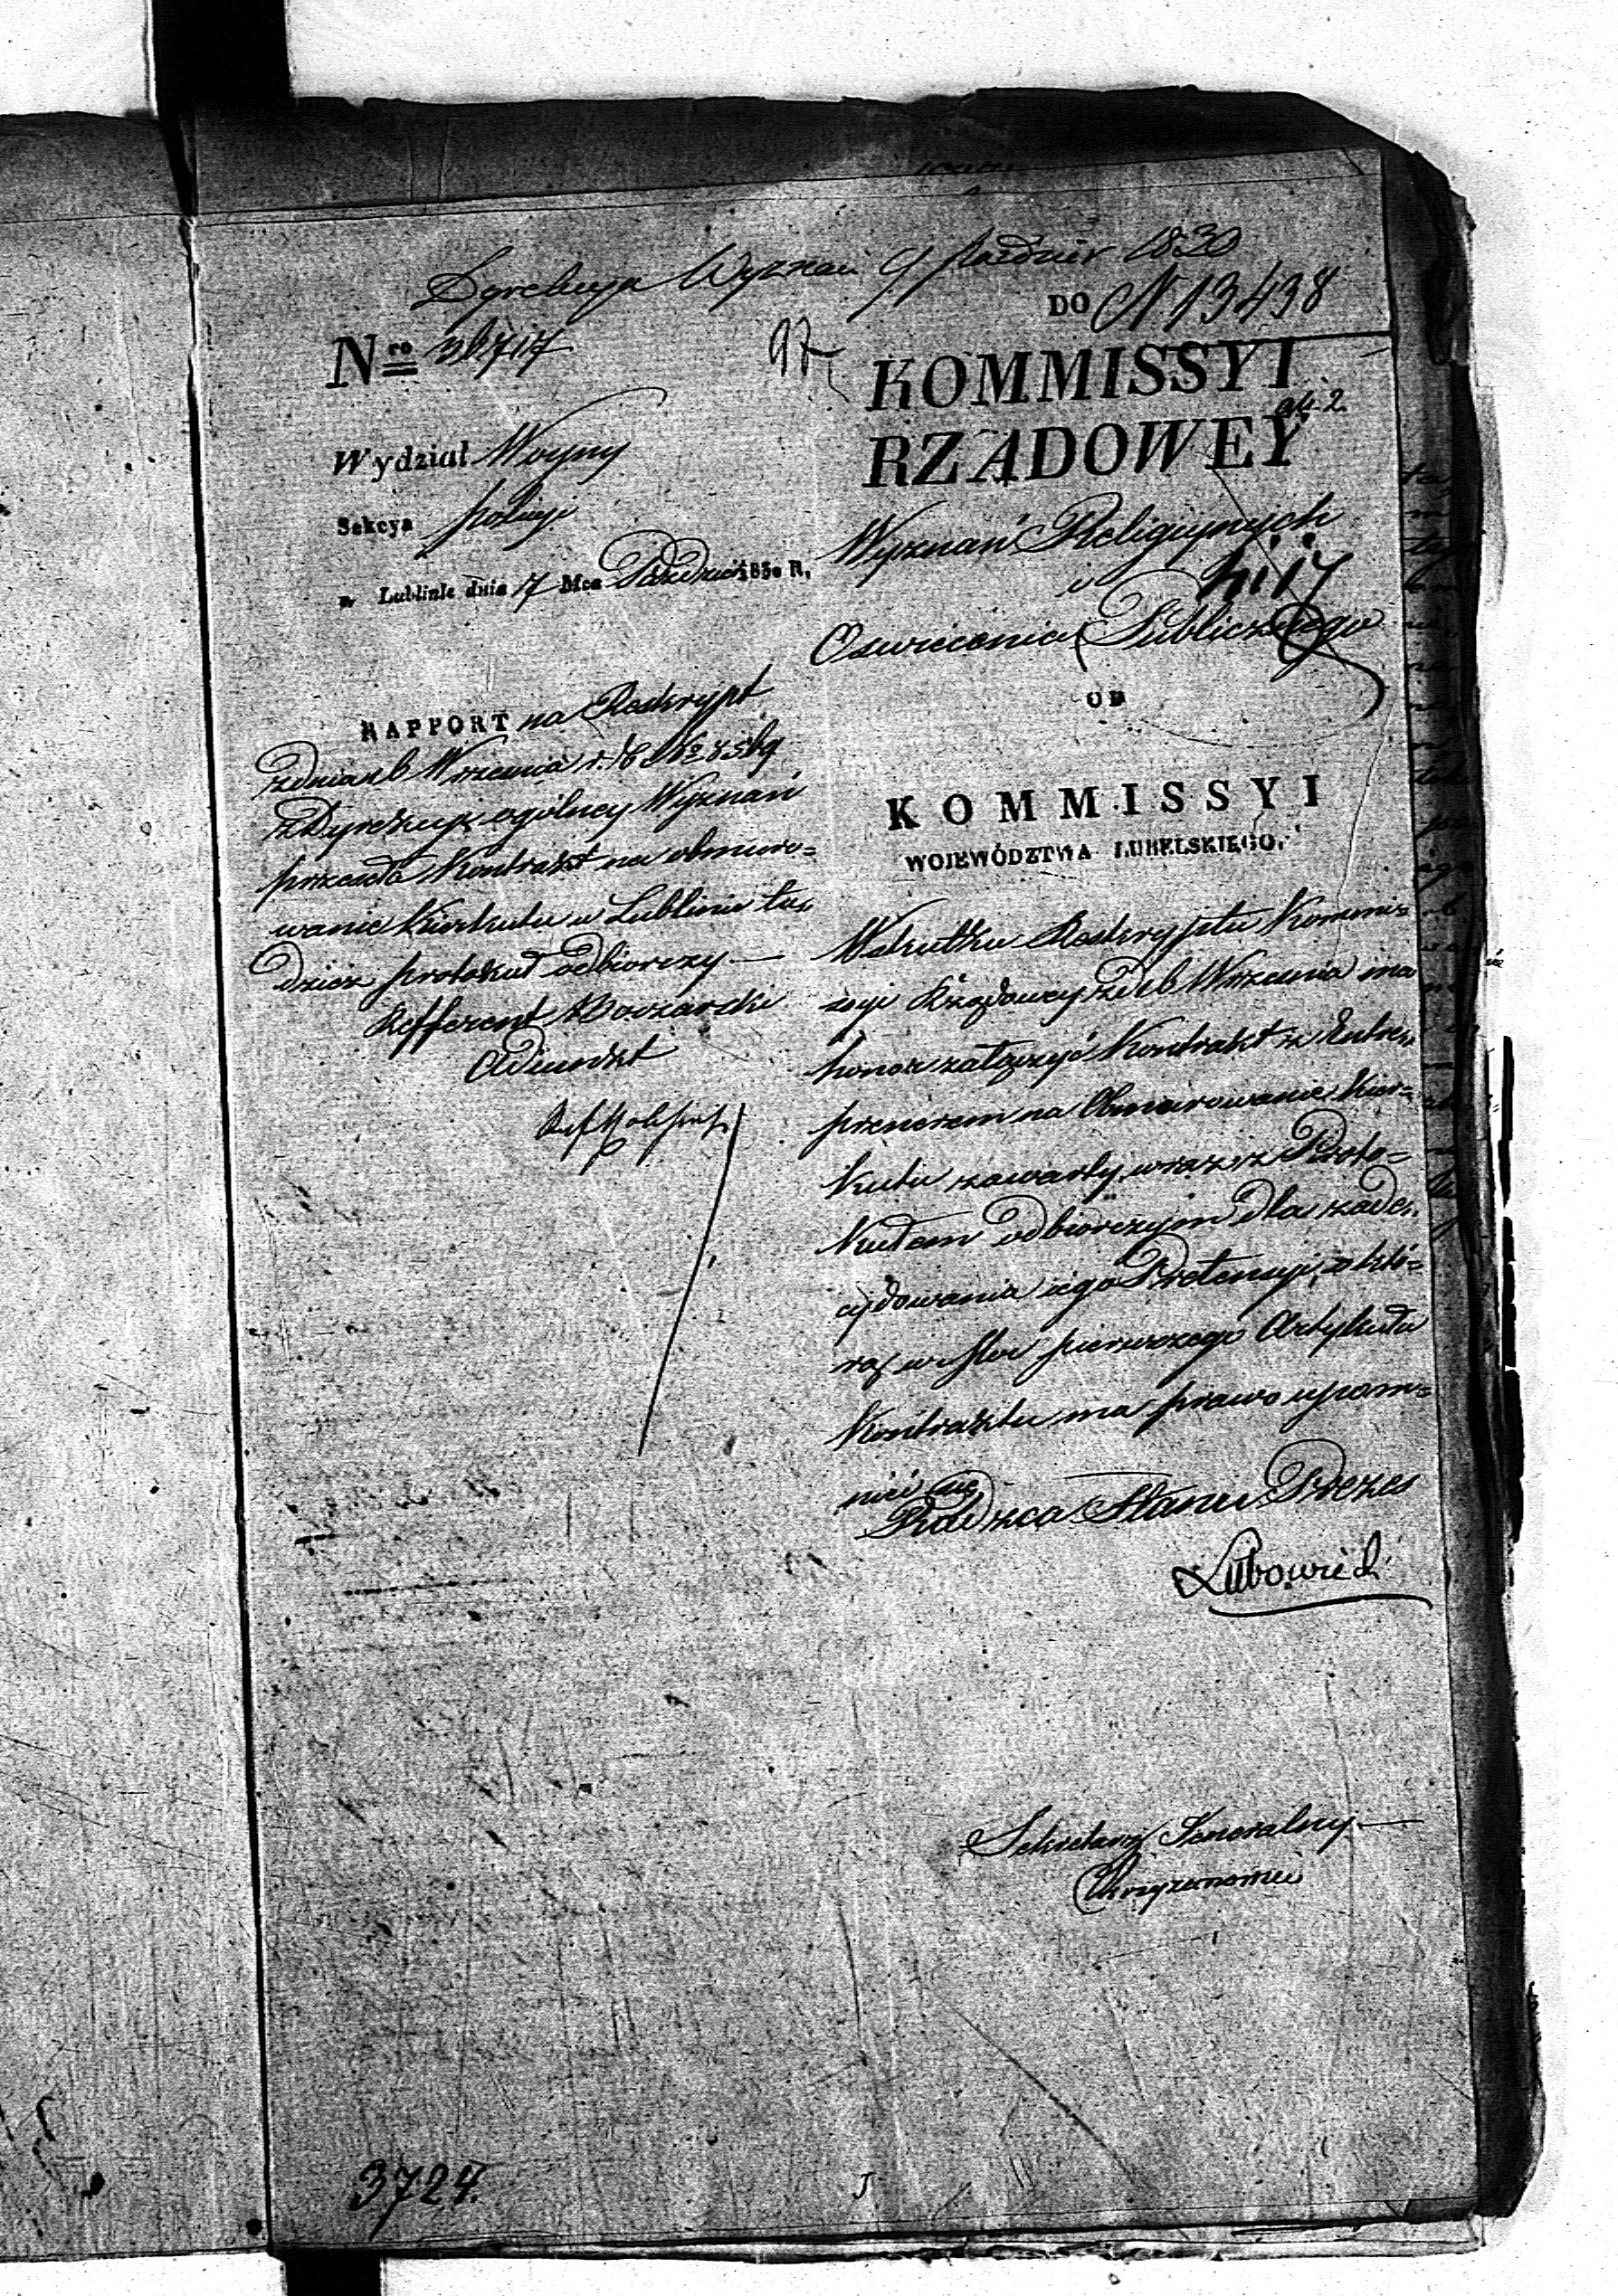 Dyrekcya Wyznań 9 Paździer 1830
DO N 13438
Nro 36717
97
KOMMISSYI
RZĄDOWEY
Wydział Woyny
Sekcya Policyi
w Lublinie dnia 7 Mca Paździer 1830 R.
Wyznań Religiynych
i
Oswiecenia Publicznego
OD
KOMMISSYI
WOJEWÓDZTWA LUBELSKIEGO.
RAPPORT na Reskrypt
z dnia Wrzesnia r. b. No
z Dyrekcyi ogólney Wyznań
przesyła Kontrakt na obmuro=
wanie Kirkutu w Lublinie tu=
dziez protokuł odbiorczy —
Refferent
Adiunkt
Wskutku Reskryptu Kommis=
syi Rządowey z d. Wrzesnia ma
honor załączyć Kontrakt z Entre=
prenerem na Obmurowanie Kier=
kutu zawarty, wraz z Proto=
kułem odbiorczym dla zade=
cydowania iego Pretensyi, o któ=
rą w Moc pierwszego Artykułu
Kontraktu ma prawo upom=
nieć się
Radzca Stanu Prezes
Lubowidz
Sekretarz Jeneralny —
3724.